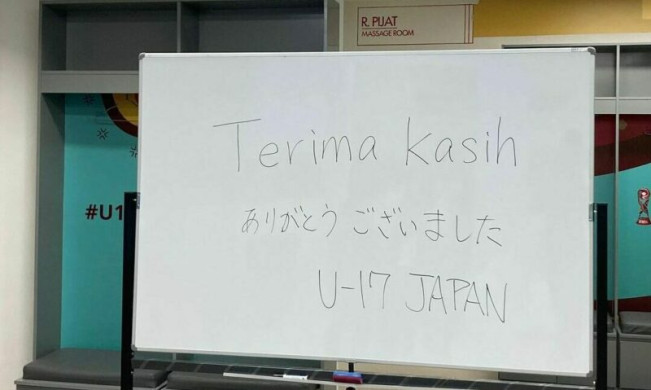 R. PIJAT
MASSAGE ROOM
Terima kasih
#U1
ありがとうございました
U-17 JAPAN